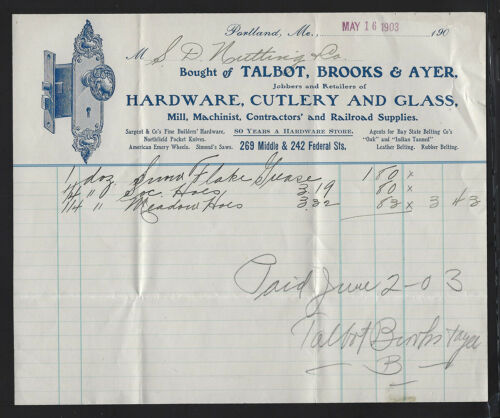 Portland, Me., MAY 16 1903 190
M S. D. Nutting & Co.
Bought of TALBOT, BROOKS & AYER,
Jobbers and Retailers of
HARDWARE, CUTLERY AND GLASS,
Mill, Machinist, Contractors' and Railroad Supplies.
Sargent & Co's Fine Builders' Hardware,
Northfield Pocket Knives.
American Emery Wheels. Simond's Saws.
80 YEARS A HARDWARE STORE.
269 Middle & 242 Federal Sts.
Agents for Bay State Belting Co's
"Oak" and "Indian Tanned"
Leather Belting. Rubber Belting.
1 doz Snow Flake Grease 180 x
1/4 " Soc. Hoes 3.19 80 x
1/4 " Meadow Hoes 3.32 83 x 3 43
Paid June 2-03
Talbot Brooks & Ayer
B